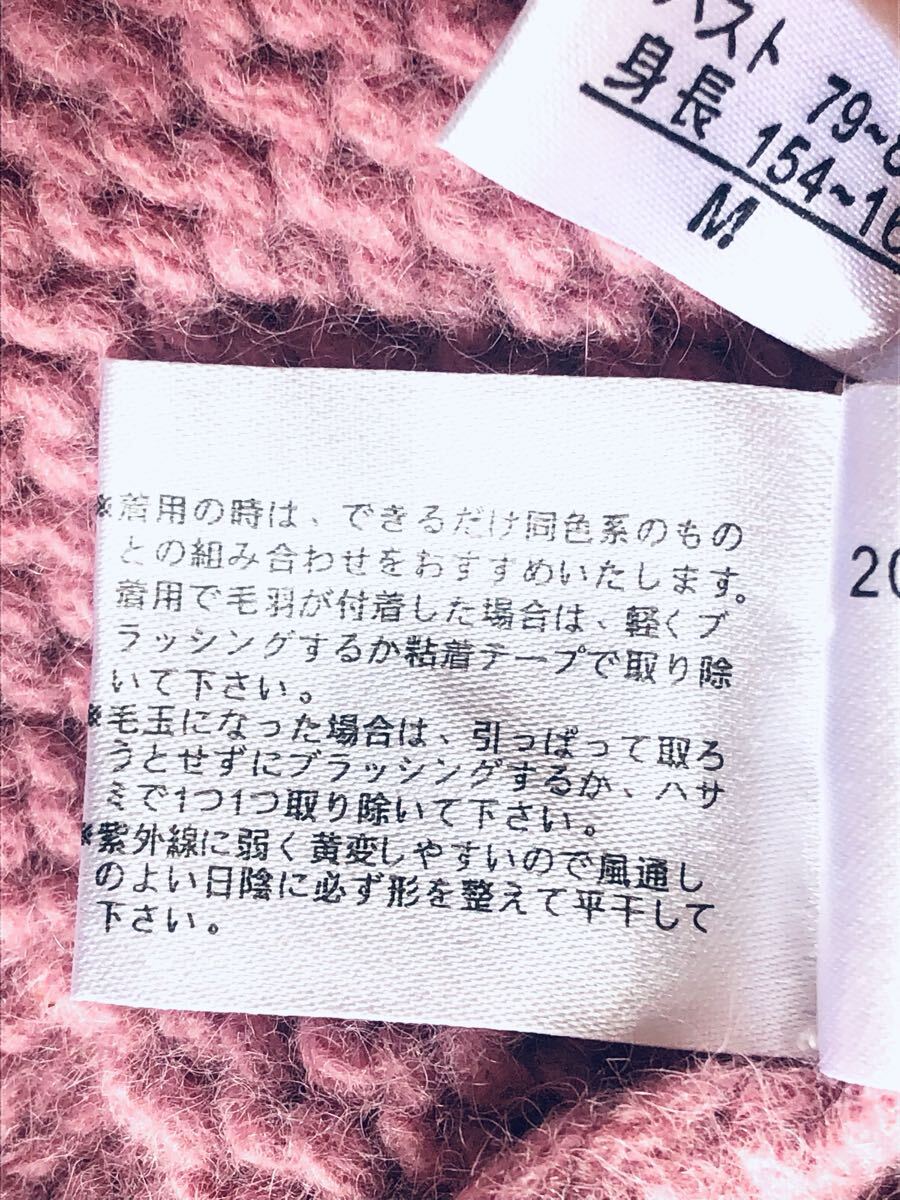 バスト 79~8
身長 154~16
M
※着用の時は、できるだけ同色系のもの
との組み合わせをおすすめいたします。
着用で毛羽が付着した場合は、軽くブ
ラッシングするか粘着テープで取り除
いて下さい。
※毛玉になった場合は、引っぱって取ろ
うとせずにブラッシングするか、ハサ
ミで1つ1つ取り除いて下さい。
※紫外線に弱く黄変しやすいので風通し
のよい日陰に必ず形を整えて平干して
下さい。
20